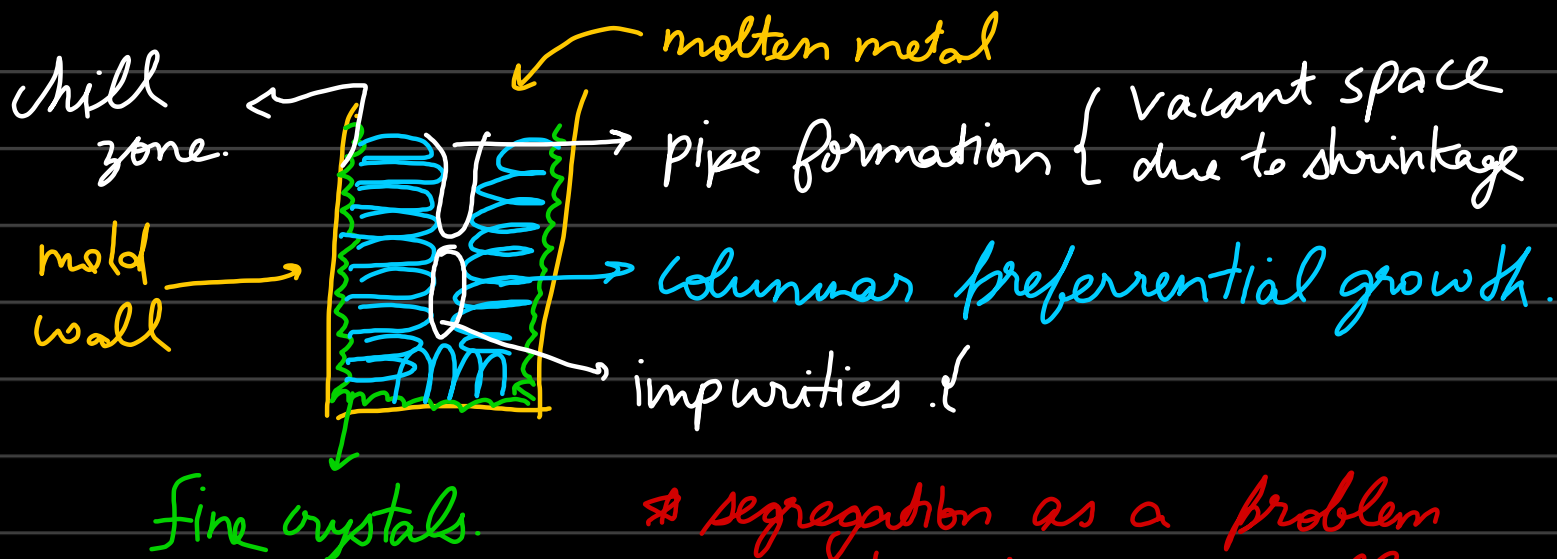 molten metal
chill
zone.
pipe formation { vacant space
due to shrinkage
mold
wall
columnar preferrential growth.
impurities .{
fine crystals.
* segregation as a problem